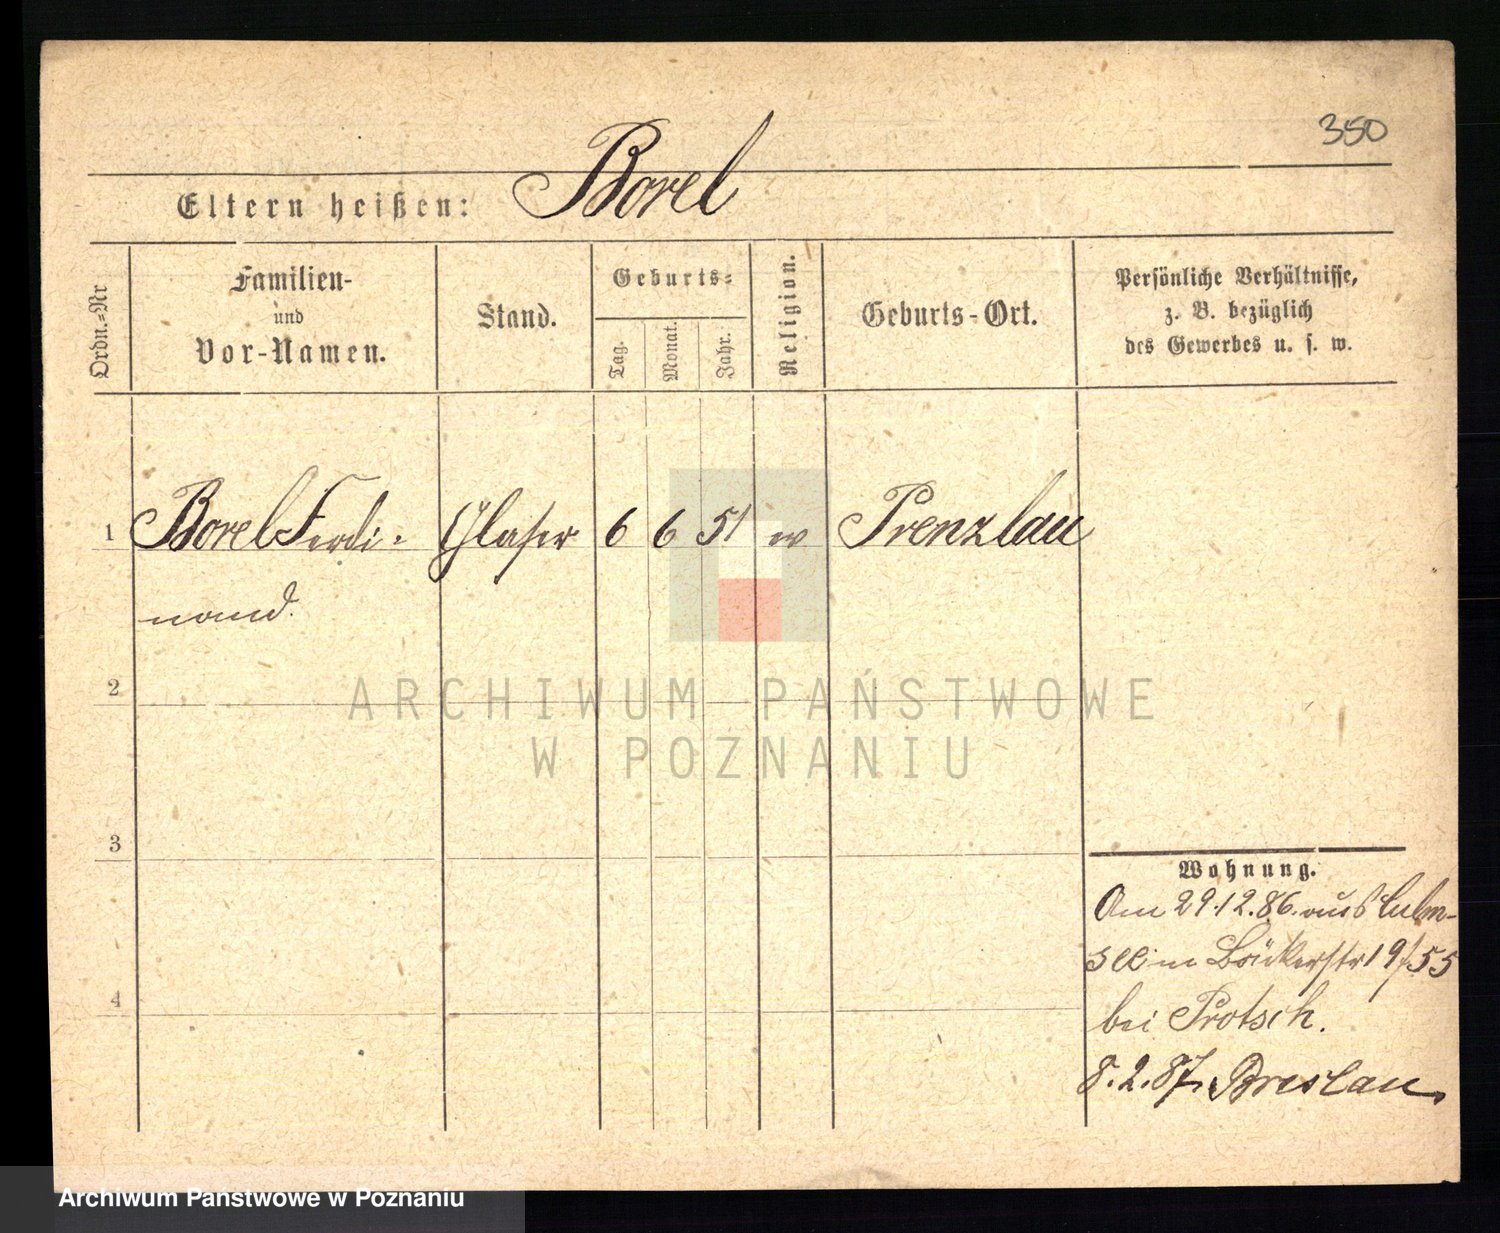 350
Borel
Eltern heißen:
Ordn.=Nr
Familien-
und
Vor-Namen.
Stand.
Geburts=
Tag.
Monat.
Jahr.
Religion.
Geburts-Ort.
Persönliche Verhältnisse,
z. B. bezüglich
des Gewerbes u. s. w.
1 Borel Ferdi- Glaser 6 6 51 Prenzlau
nand.
2
ARCHIWUM PAŃSTWOWE
W POZNANIU
3
Wohnung.
Am 29.12.86. aus Culm-
see in 19/55
4
bei Protsch.
8.2.87. Breslau
Archiwum Państwowe w Poznaniu